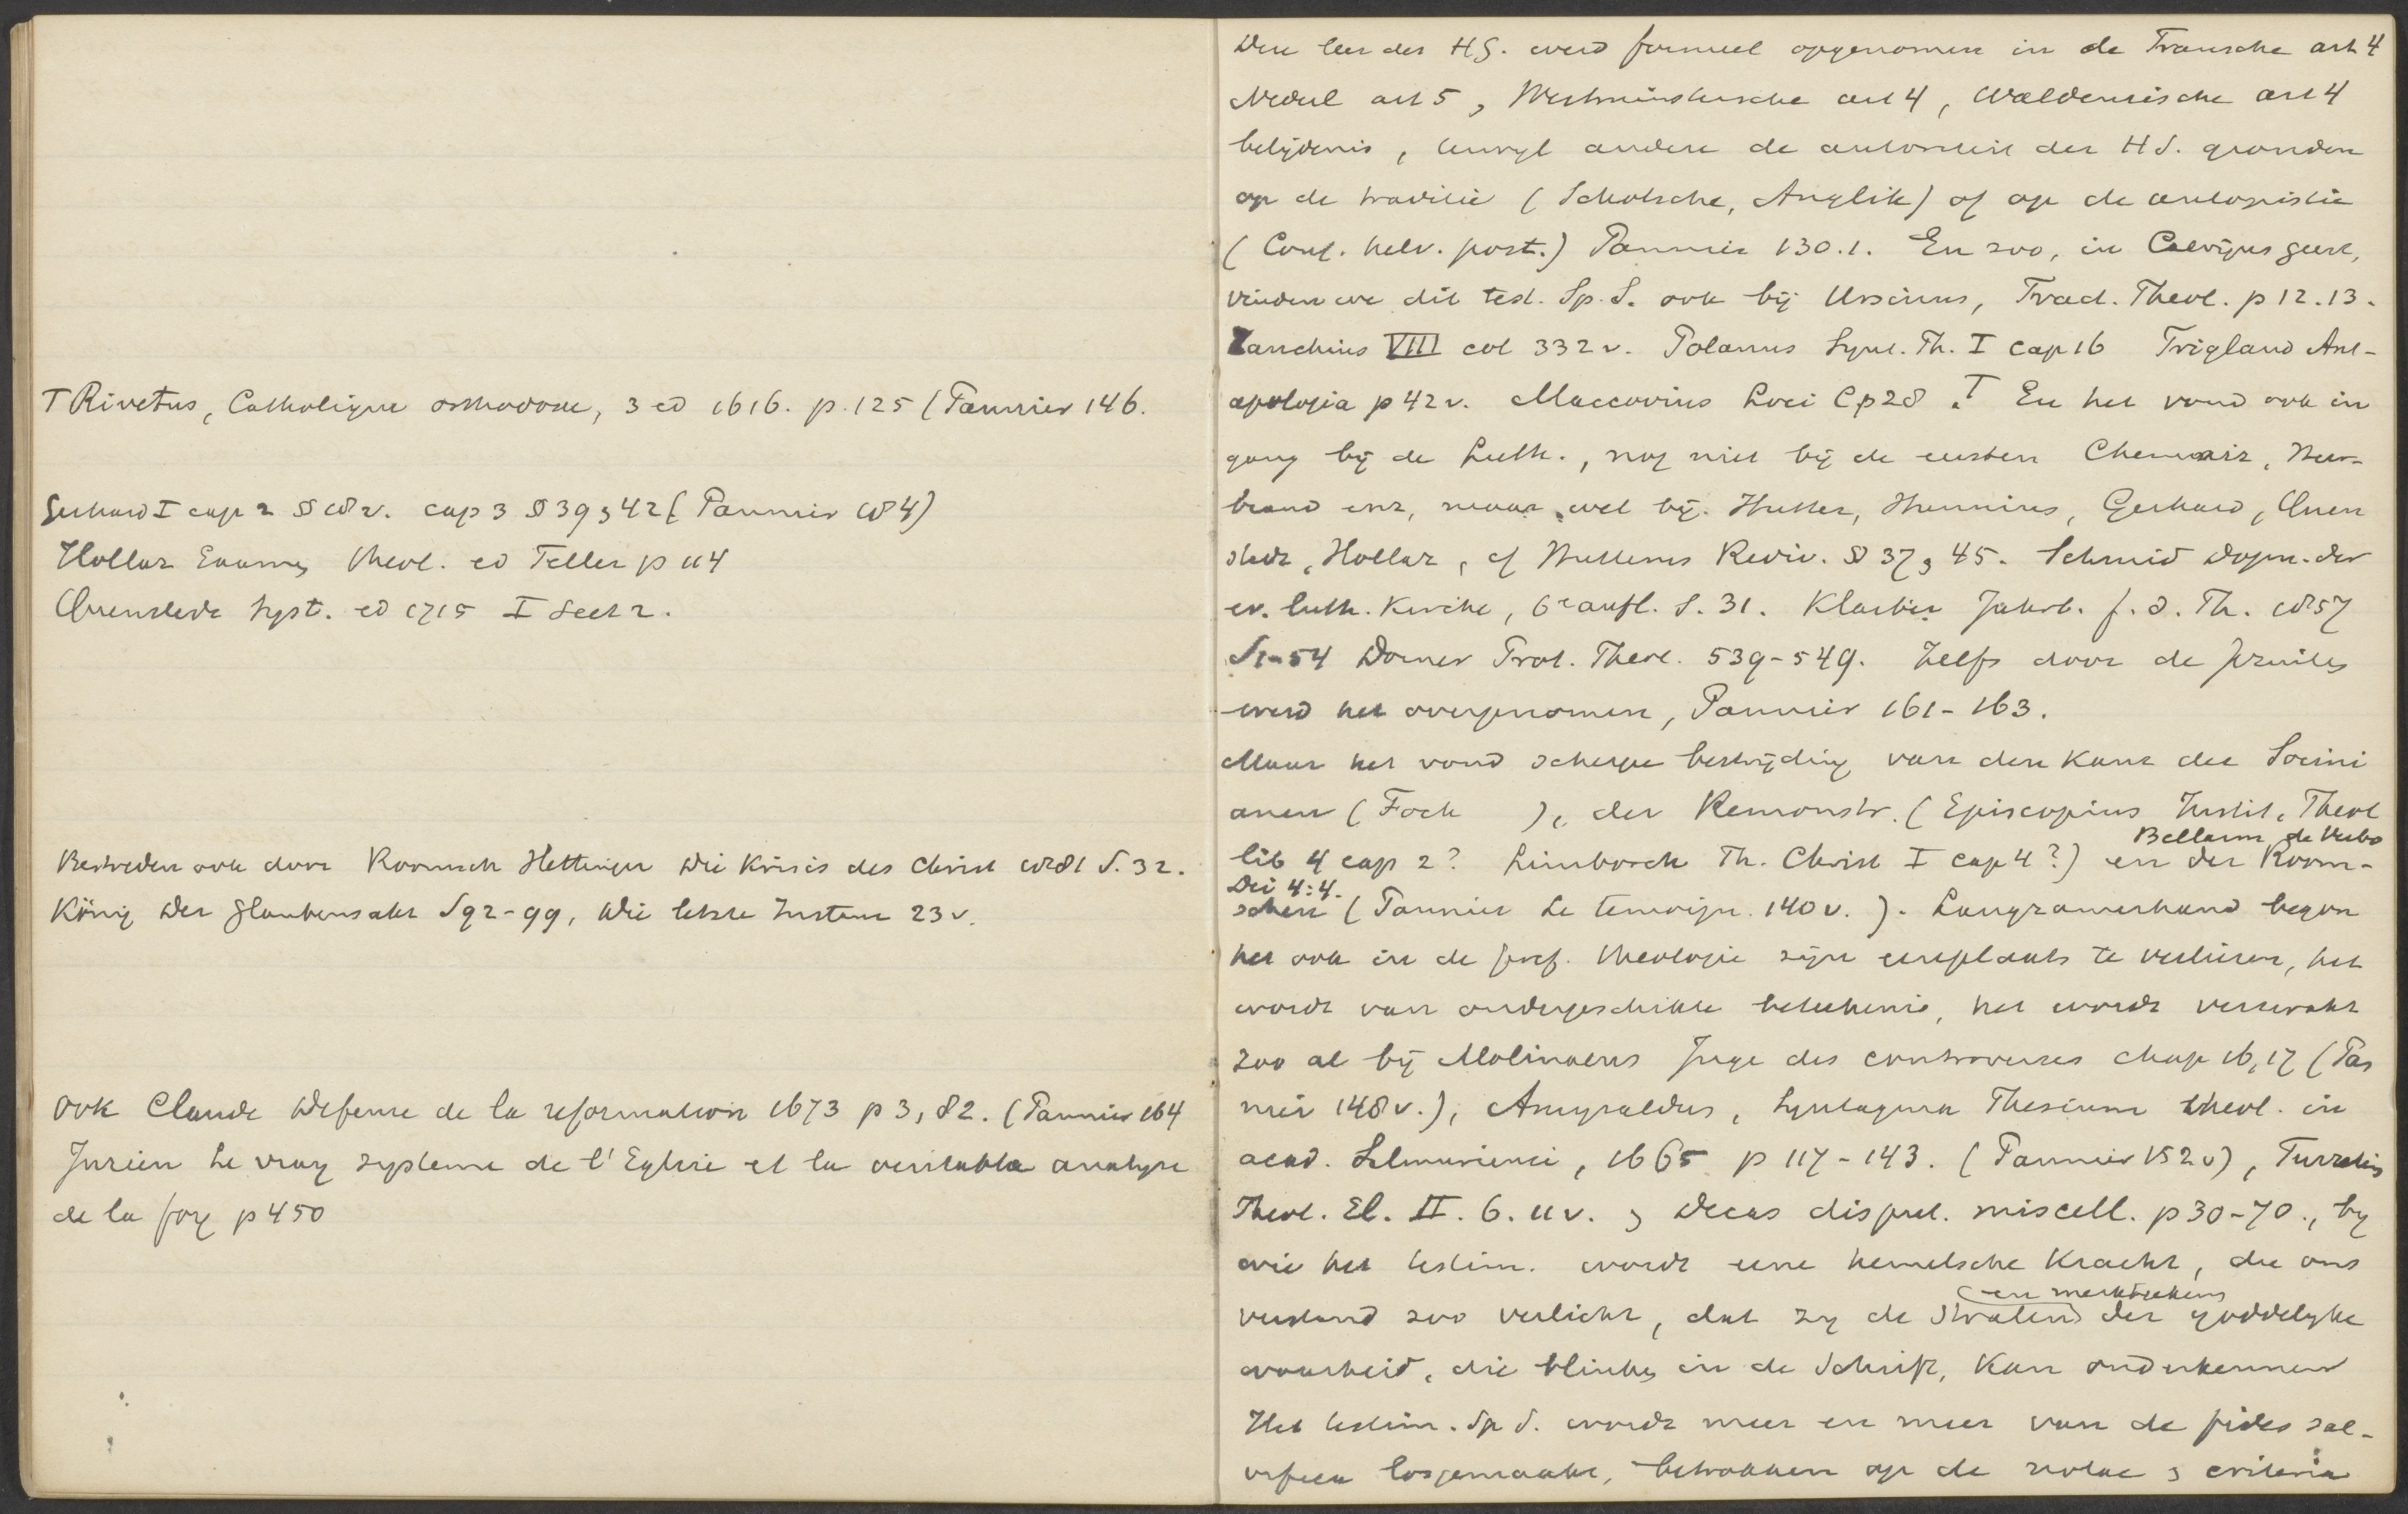 T Rivetus, Catholique orthodoxe, 3 ed 1616. p. 125 (Pannier 146.
Gerhard I cap 2 § 18 v. cap 3 § 39 & 42 (Pannier 184)
Hollaz Examen theol. ed Teller p 114
Quenstedt Syst. ed 1715 I Sect 2.
Bestreden ook door Roomsch Hettinger Die Krisis des Christ 1881 S. 32.
König Der Glaubensakt S 92-99, Die letzte Instanz 23 v.
ook Claude Défense de la reformation 1673 p 3, 82. (Pannier 164
Jurieu Le vray systeme de l'Eglise et la veritable analyse
de la foy p 450
Deze leer der HS. werd formeel opgenomen in de Fransche art 4
Nederl art 5, Westminstersche art 4, Waldensische art 4
belijdenis, terwyl andere de autoriteit der H S. gronden
op de traditie (Schotsche, Anglik) of op de autopistie
(Conf. helv. post.) Pannier 130.1. En zoo, in Calvijns geest,
vinden we dit test. Sp. S. ook bij Ursinus, Tract. Theol. p 12.13.
Zanchius VIII col 332 v. Polanus Synt. Th. I cap 16 Trigland Ant-
apologia p 42 v. Maccovius Loci C p 28. T En het vond ook in
gang bij de Luth., nog niet bij de eersten Chemniz, Heer-
brand enz, maar wel bij. Hutter, Hunnius, Gerhard, Quen
stedt, Hollaz, cf Hutterus Rediv. § 37 & 45. Schmid Dogm. der
ev. luth. Kirche, 6e aufl. S. 31. Klaiber Jahrb. f. d. Th. 1857
S 1-54 Dorner Prot. Theol. 539-549. Zelfs door de Jezuites
werd het overgenomen, Pannier 161-163.
Maar het vond scherpe bestrijding van den kant der Socini
anen (Fock ), der Remonstr. (Episcopius Instit. Theol
lib 4 cap 2? Limborch Th. Christ I cap 4?) en der Room-
Bellarm de Verbo
Dei 4:4.
schen (Pannier Le temoign. 140 v.). Langzamerhand begon
het ook in de Geref. theologie zijn eereplaats te verliezen, het
wordt van ondergeschikte beteekenis, het wordt verzwakt
zoo al bij Molinaeus Juge des controverses chap 16, 17 (Pan
nier 148 v.), Amyraldus, Syntagma Thesium theol. in
acad. Salmuriensi, 1665 p 117-143. (Pannier 152 v), Turretin
Theol. El. II. 6. 11 v. & Decas disput. miscell. p 30-70., by
wie het testim. wordt eene hemelsche kracht, die ons
en merkteekens
verstand zoo verlicht, dat zy de stralen der goddelyke
waarheid, die blinken in de Schrift, kan onderkennen
Het testim. Sp S. wordt meer en meer van de fides sal-
vifica losgemaakt, betrokken op de notae & criteria